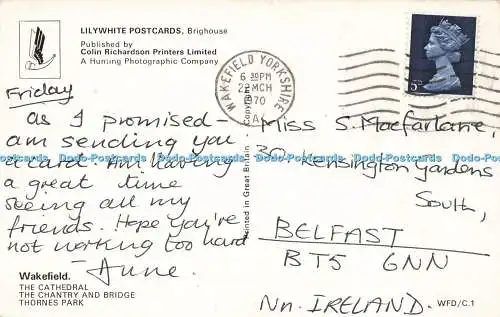 LILYWHITE POSTCARDS, Brighouse
Published by
Colin Richardson Printers Limited
A Hunting Photographic Company
Friday
As I promised -
am sending you
a card. Am having
a great time
seeing all my
friends. Hope you're
not working too hard
- Anne.
Wakefield.
THE CATHEDRAL
THE CHANTRY AND BRIDGE
THORNES PARK
Printed in Great Britain Copyright
WAKEFIELD YORKSHIRE
6 30PM
22 MCH
1970
A
5D
Miss S. Macfarlane,
30 Kensington Gardens
South,
BELFAST
BT5 6NN
Nn. IRELAND.
WFD/C.1
www.world-postcards.com